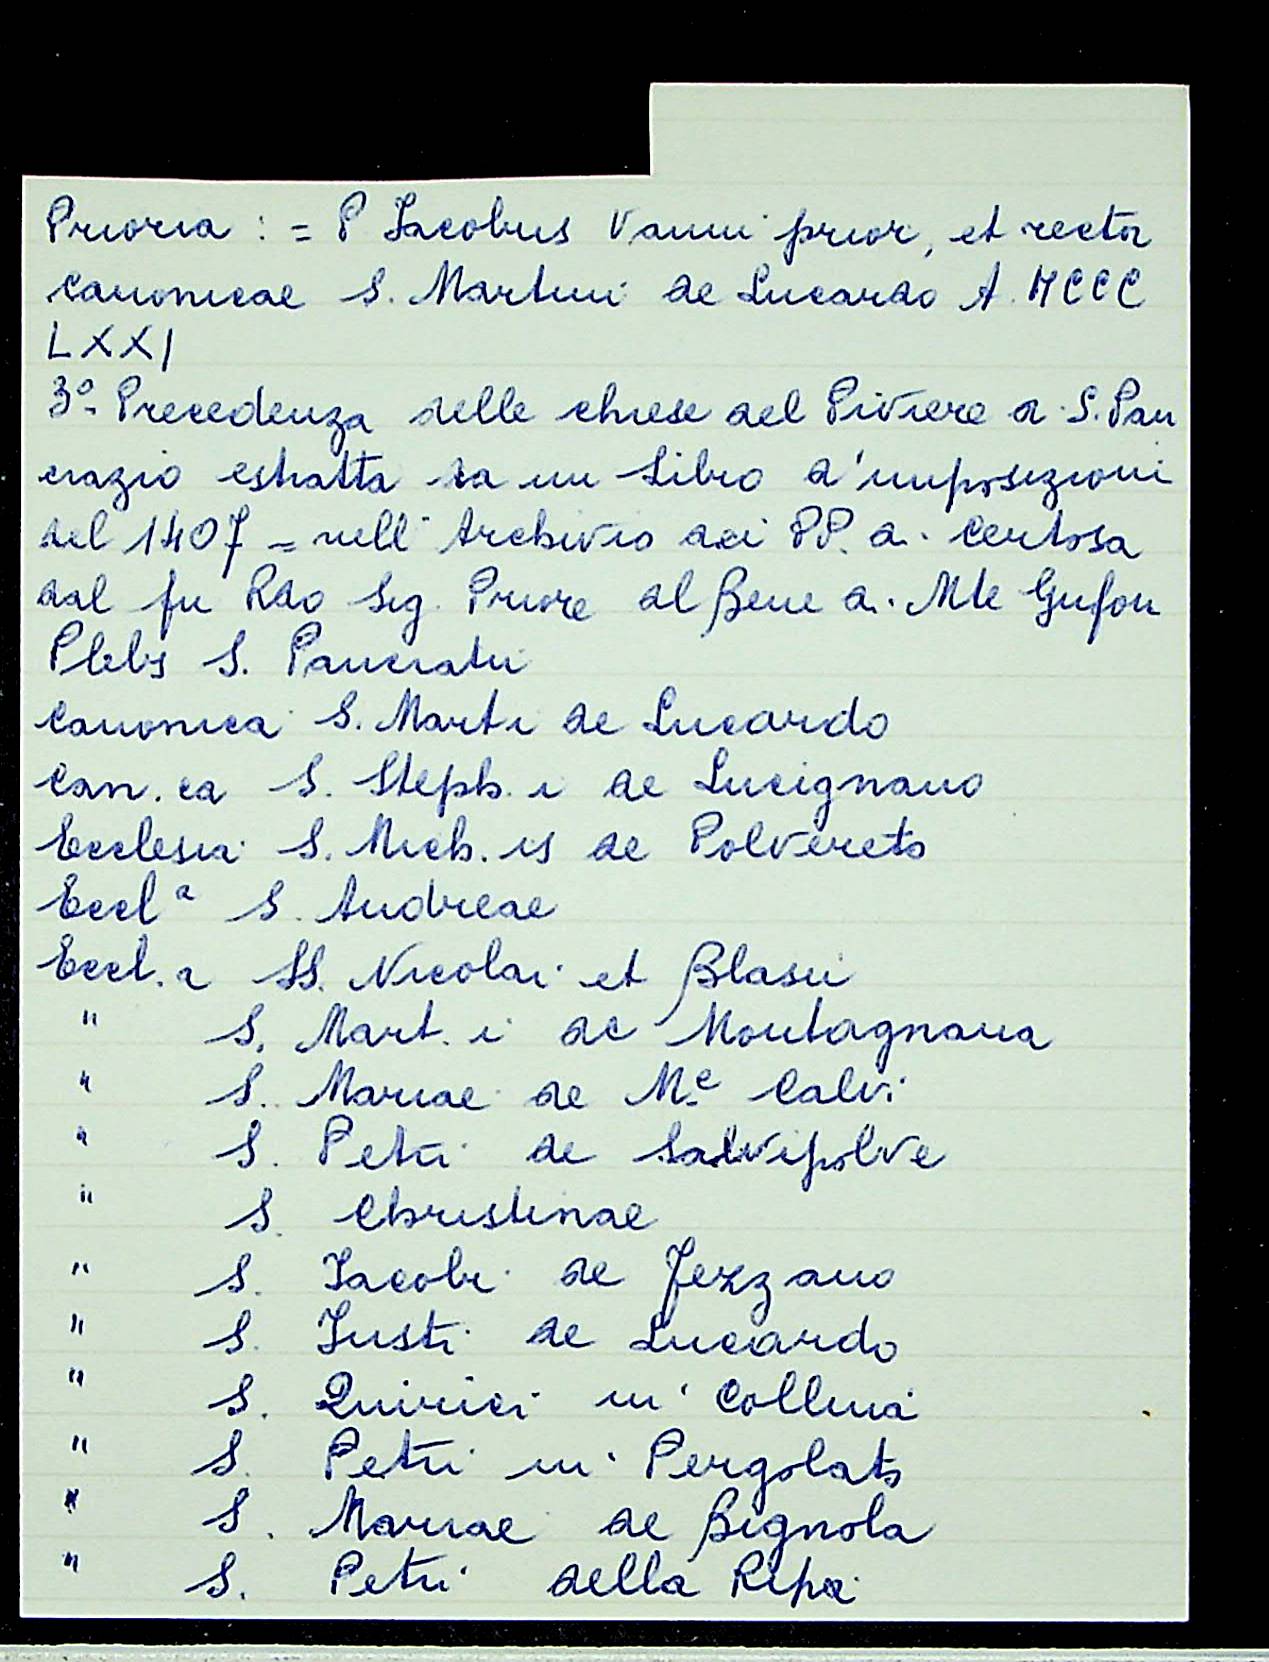 Prioria : = P Iacobus Vanni prior, et rector
canonicae S. Martini de Lucardo A. MCCC
LXXI
3º- Precedenza delle chiese del Piviere di S. Pan
crazio estratta da un Libro d'imposizioni
del 1407 = nell' Archivio dei PP. di Certosa
dal fu Rdo Sig. Priore del Bene di Mte Gufon
Plebs S. Pancratii
Canonica S. Mart i de Lucardo
Can. ca S. Steph. i de Lucignano
Ecclesia S. Mich. is de Polvereto
Eccl a S. Andreae
Eccl. a SS. Nicolai et Blasii
" S. Mart. i de Montagnana
" S. Mariae de M.e Calvi
" S. Petri de Salvipolve
" S. Christinae
" S. Iacobi de Jezzano
" S. Iusti de Lucardo
" S. Quirici in Collina
" S. Petri in Pergolato
" S. Mariae de Bignola
" S. Petri della Ripa